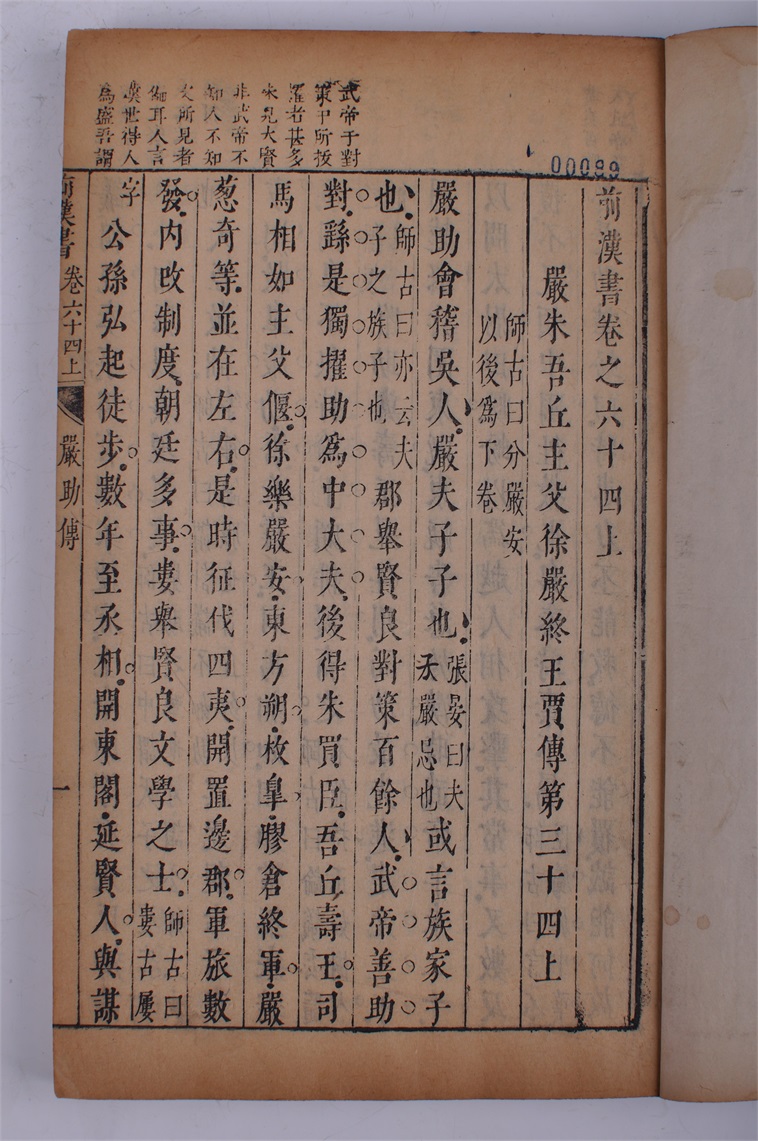 00099
武帝于對
策中所拔
擢者甚多
未見大賢
非武帝不
知人不知
文所見者
耳人言
漢世得人
為盛吾謂
前漢書卷之六十四上
嚴朱吾丘主父徐嚴終王賈傳第三十四上
師古曰分嚴安
以後爲下卷
嚴助會稽吳人嚴夫子子也張晏曰夫子嚴忌也或言族家子
也師古曰亦云夫子之族子也郡舉賢良對策百餘人武帝善助
對繇是獨擢助爲中大夫後得朱買臣吾丘壽王司
馬相如主父偃徐樂嚴安東方朔枚皐膠倉終軍嚴
葱奇等並在左右是時征伐四夷開置邊郡軍旅數
發內改制度朝廷多事婁舉賢良文學之士師古曰婁古屢
字公孫弘起徒步數年至丞相開東閣延賢人與謀
前漢書 卷六十四上 嚴助傳 一